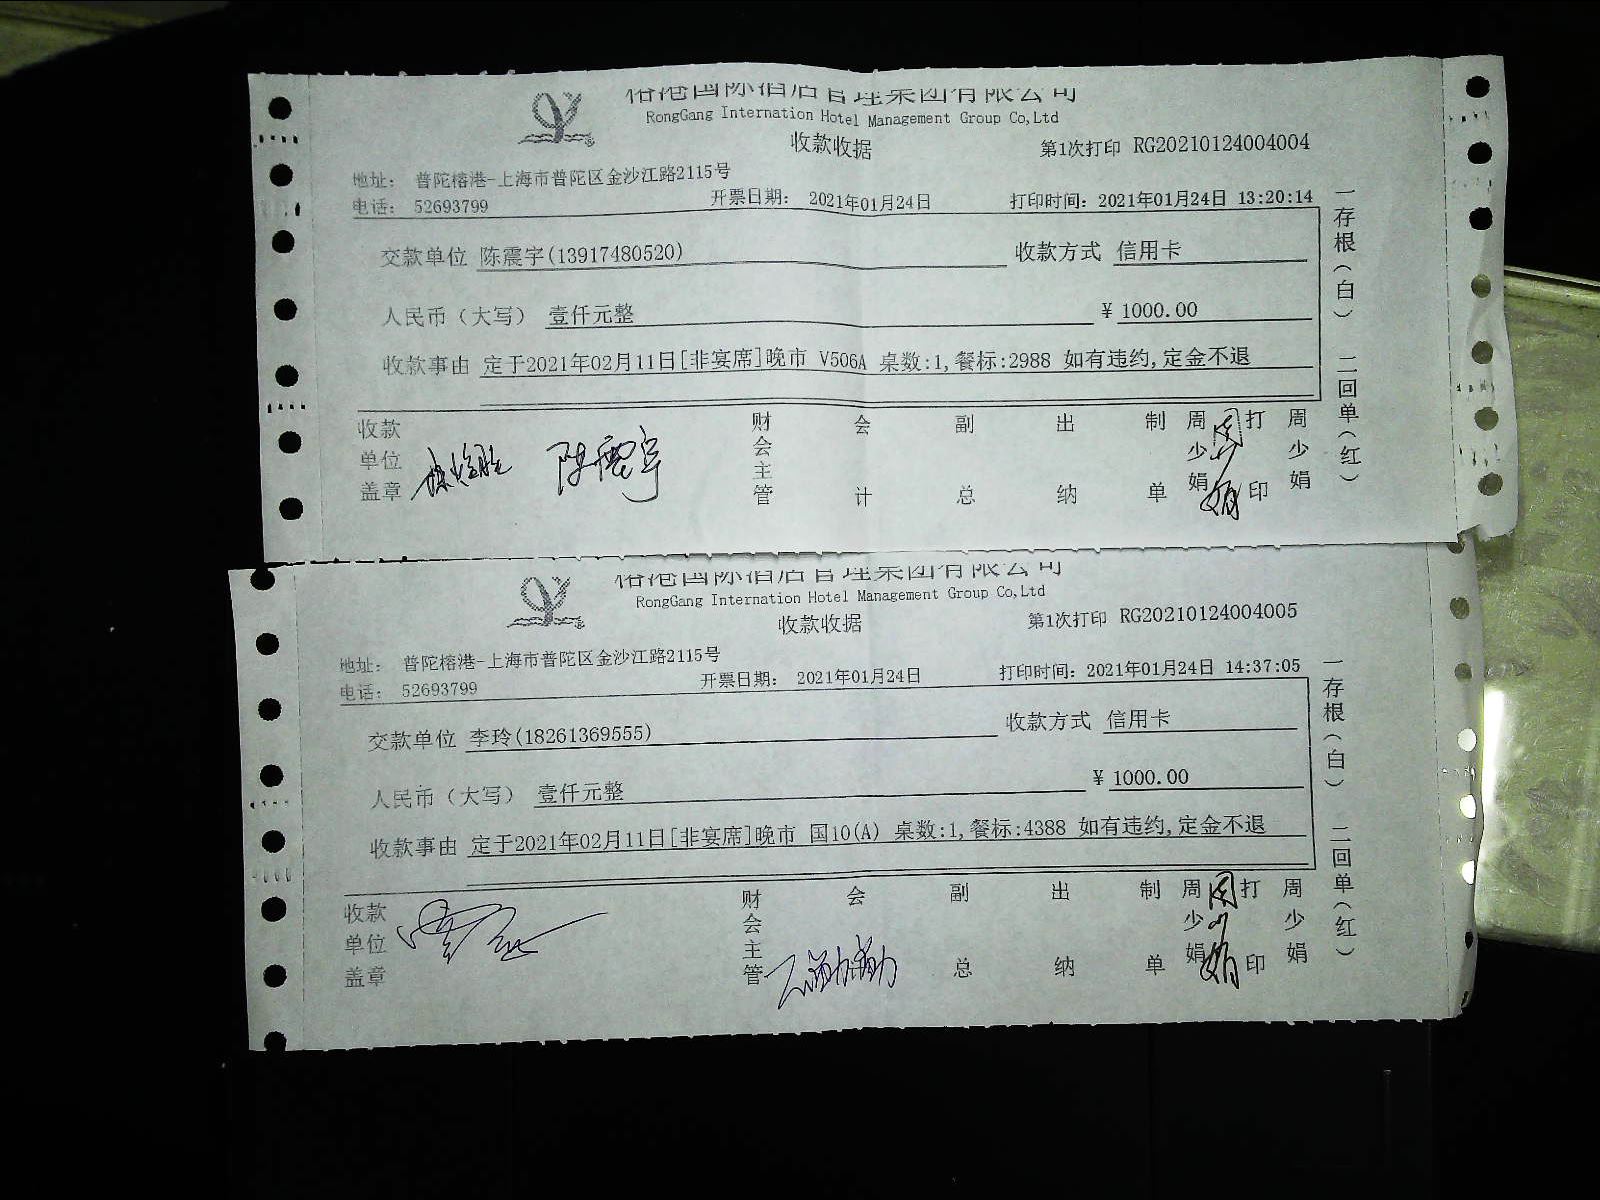 榕港国际酒店管理集团有限公司
RongGang Internation Hotel Management Group Co,Ltd
收款收据
第1次打印 RG20210124004004
地址： 普陀榕港-上海市普陀区金沙江路2115号
电话： 52693799
开票日期： 2021年01月24日
打印时间：2021年01月24日 13:20:14
交款单位 陈震宇(13917480520)
收款方式 信用卡
人民币（大写） 壹仟元整
¥ 1000.00
收款事由 定于2021年02月11日[非宴席]晚市 V506A 桌数:1,餐标:2988 如有违约,定金不退
收款单位盖章
陈震宇
财会主管
会计
副总
出纳
制单
周少娟
周少娟
打印
周少娟
一存根（白） 二回单（红）
榕港国际酒店管理集团有限公司
RongGang Internation Hotel Management Group Co,Ltd
收款收据
第1次打印 RG20210124004005
地址： 普陀榕港-上海市普陀区金沙江路2115号
电话： 52693799
开票日期： 2021年01月24日
打印时间：2021年01月24日 14:37:05
交款单位 李玲(18261369555)
收款方式 信用卡
人民币（大写） 壹仟元整
¥ 1000.00
收款事由 定于2021年02月11日[非宴席]晚市 国10(A) 桌数:1,餐标:4388 如有违约,定金不退
收款单位盖章
财会主管
会
副总
出纳
制单
周少娟
周少娟
打印
周少娟
一存根（白） 二回单（红）